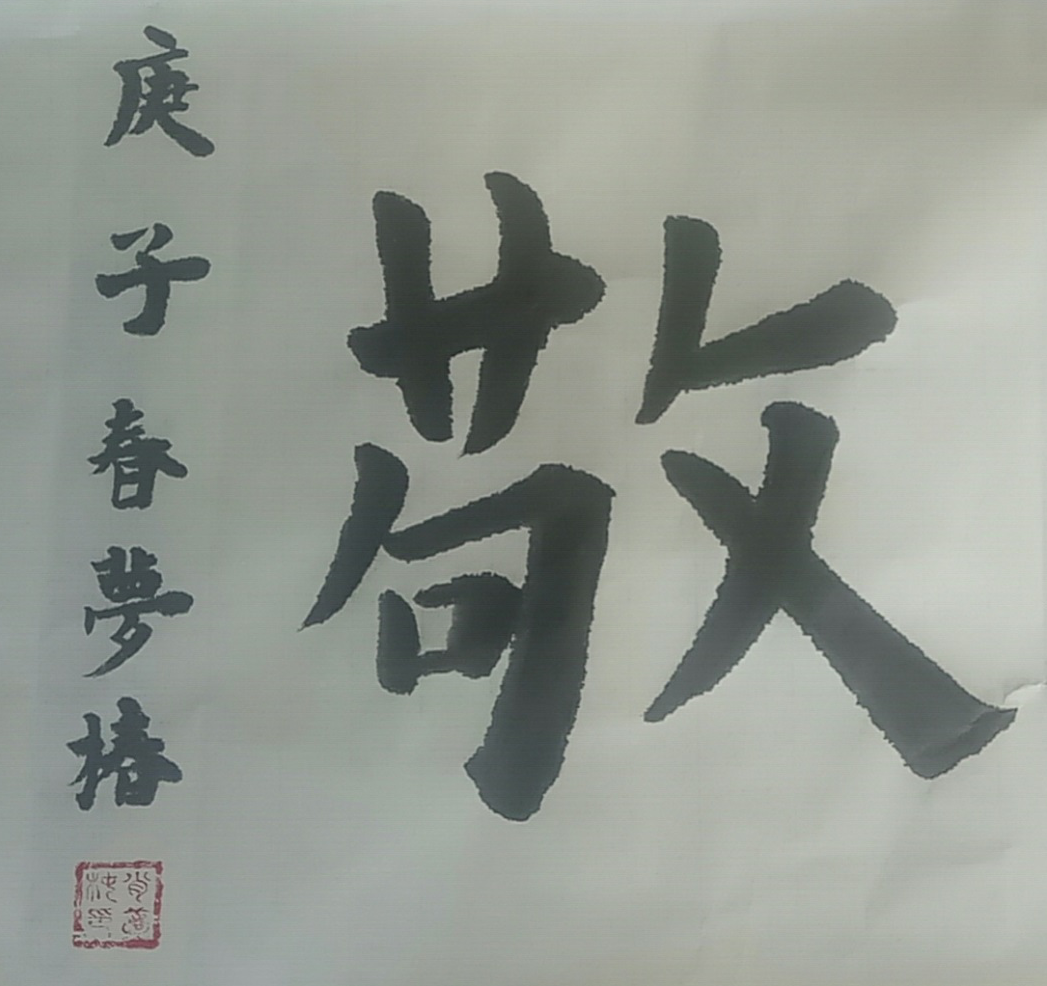 敬
庚子春夢椿